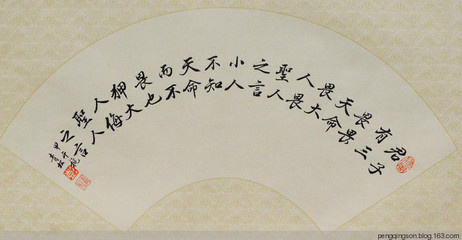 君子
有三
畏畏
天命
畏大
人畏
聖人
之言
小人
不知
天命
而不
畏也
狎大
人侮
聖人
之言
甲午
青松
pengqingson.blog.163.com